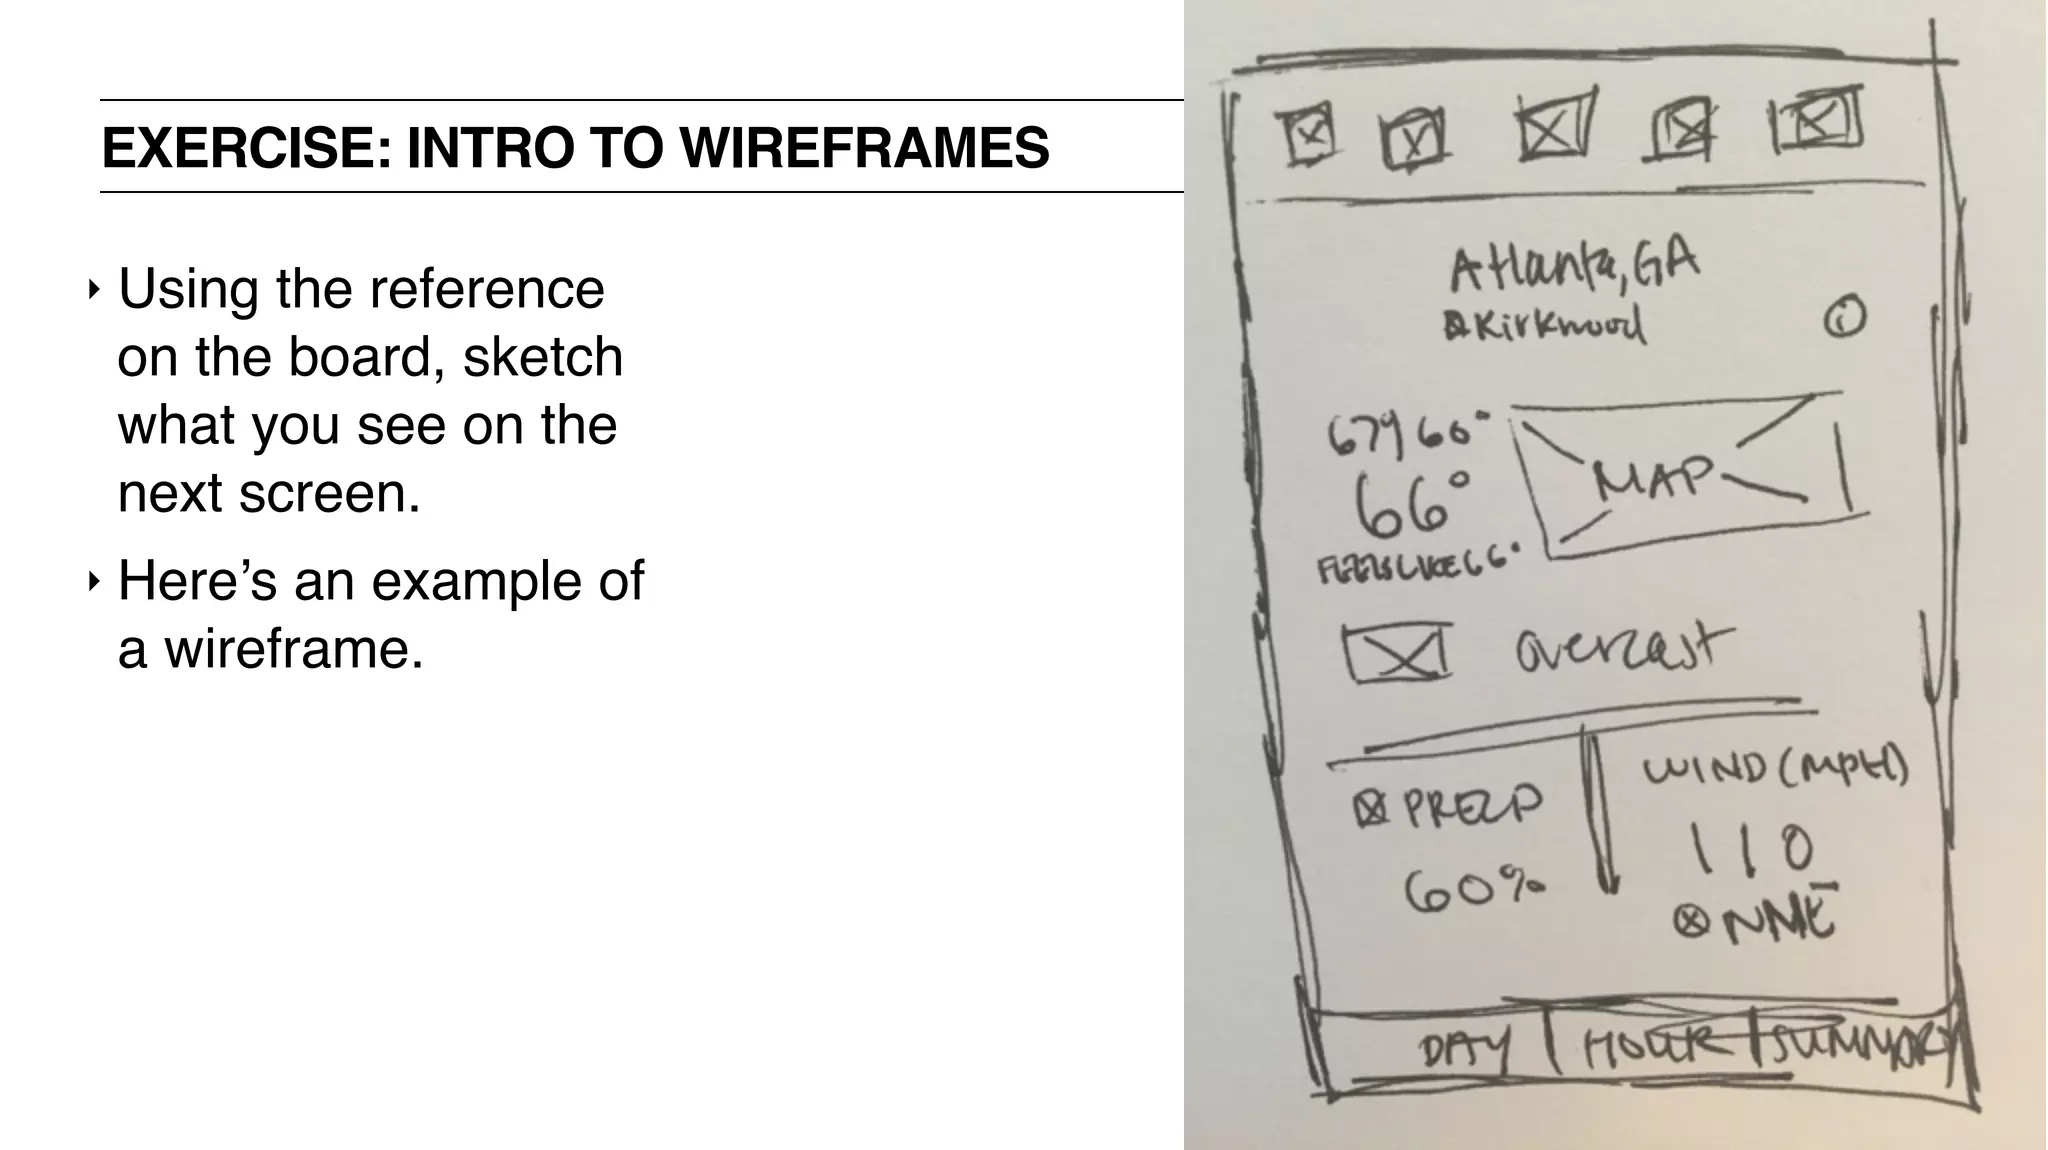 EXERCISE: INTRO TO WIREFRAMES
‣ Using the reference
on the board, sketch
what you see on the
next screen.
‣ Here’s an example of
a wireframe.
Atlanta, GA
Kirkwood
i
60°
66°
MAP
FEELS LIKE 66°
overcast
PRECIP
60%
WIND (MPH)
110
DAY | HOUR | SUMMARY